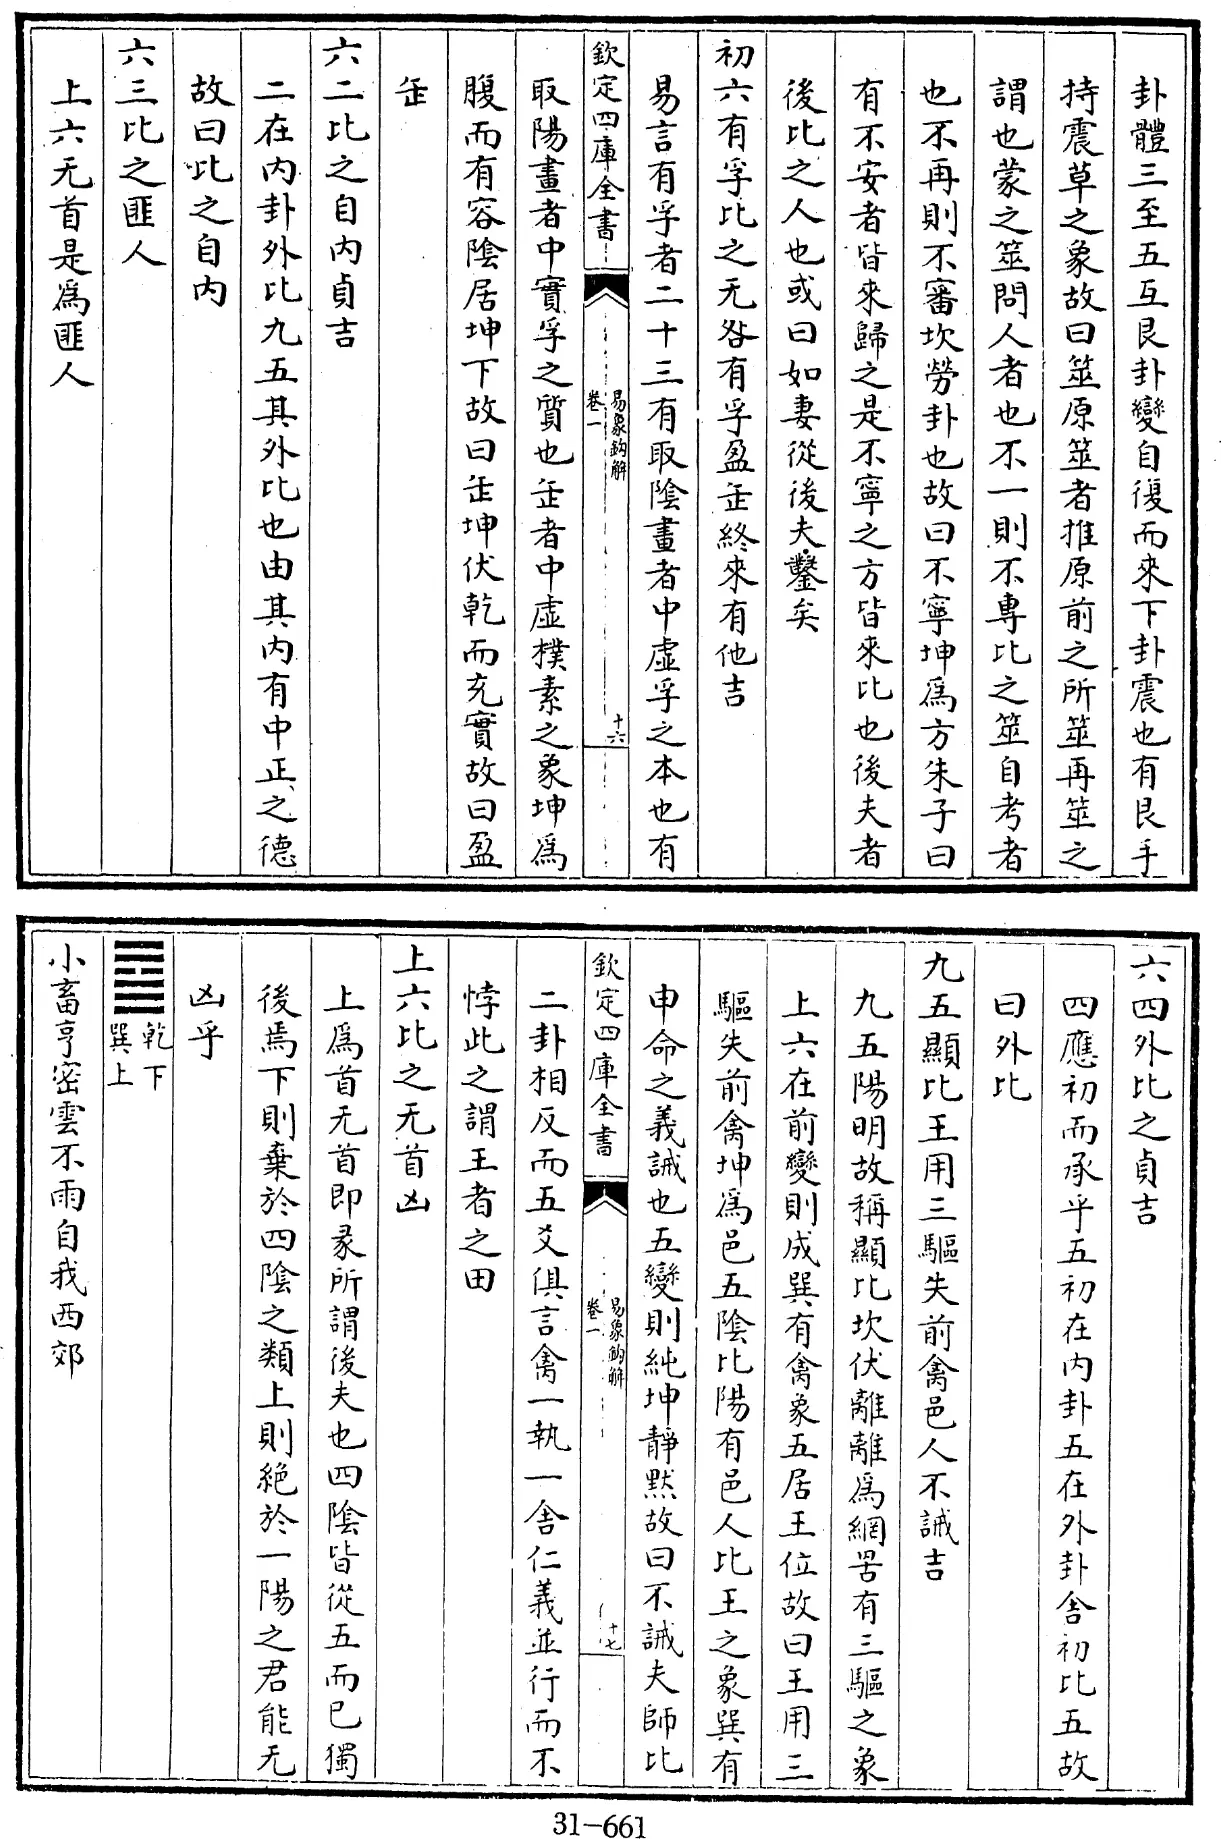 卦體三至五互艮卦變自復而來下卦震也有艮手
持震草之象故曰筮原筮者推原前之所筮再筮之
謂也蒙之筮問人者也不一則不專比之筮自考者
也不再則不審坎勞卦也故曰不寧坤為方朱子曰
有不安者皆來歸之是不寧之方皆來比也後夫者
後比之人也或曰如妻從後夫鑿矣
初六有孚比之无咎有孚盈缶終來有他吉
易言有孚者二十三有取陰畫者中虛孚之本也有
欽定四庫全書
易象鈎解
卷一
十六
取陽畫者中實孚之質也缶者中虛樸素之象坤為
腹而有容陰居坤下故曰缶坤伏乾而充實故曰盈
缶
六二比之自内貞吉
二在内卦外比九五其外比也由其内有中正之德
故曰比之自内
六三比之匪人
上六无首是為匪人
六四外比之貞吉
四應初而承乎五初在内卦五在外卦舍初比五故
曰外比
九五顯比王用三驅失前禽邑人不誡吉
九五陽明故稱顯比坎伏離離為網罟有三驅之象
上六在前變則成巽有禽象五居王位故曰王用三
驅失前禽坤為邑五陰比陽有邑人比王之象巽有
申命之義誡也五變則純坤靜默故曰不誡夫師比
欽定四庫全書
易象鈎解
卷一
十七
二卦相反而五爻俱言禽一執一舍仁義並行而不
悖此之謂王者之田
上六比之无首凶
上為首无首即彖所謂後夫也四陰皆從五而已獨
後焉下則棄於四陰之類上則絶於一陽之君能无
凶乎
乾下
巽上
小畜亨密雲不雨自我西郊
31-661